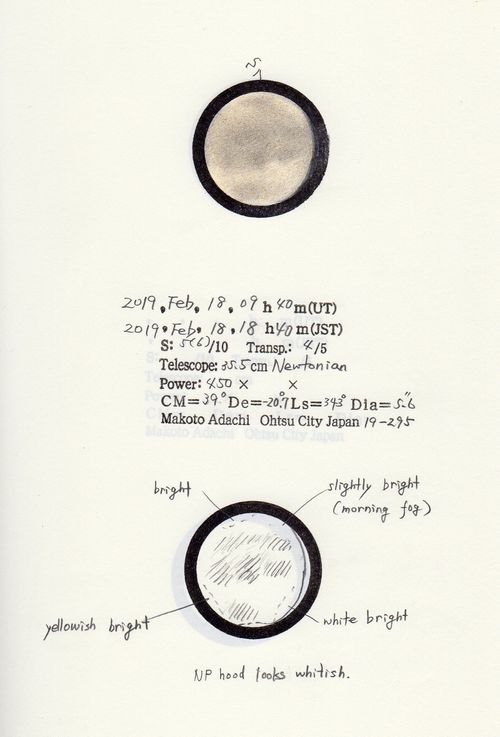 S
2019, Feb, 18, 09 h 40 m(UT)
2019, Feb, 18, 18 h 40 m(JST)
S: 5(6)/10 Transp.: 4/5
Telescope: 35.5 cm Newtonian
Power: 450 × ×
CM=39° De=-20.7° Ls=343° Dia=5.6"
Makoto Adachi Ohtsu City Japan 19-295
bright
slightly bright
(morning fog)
yellowish bright
white bright
NP hood looks whitish.